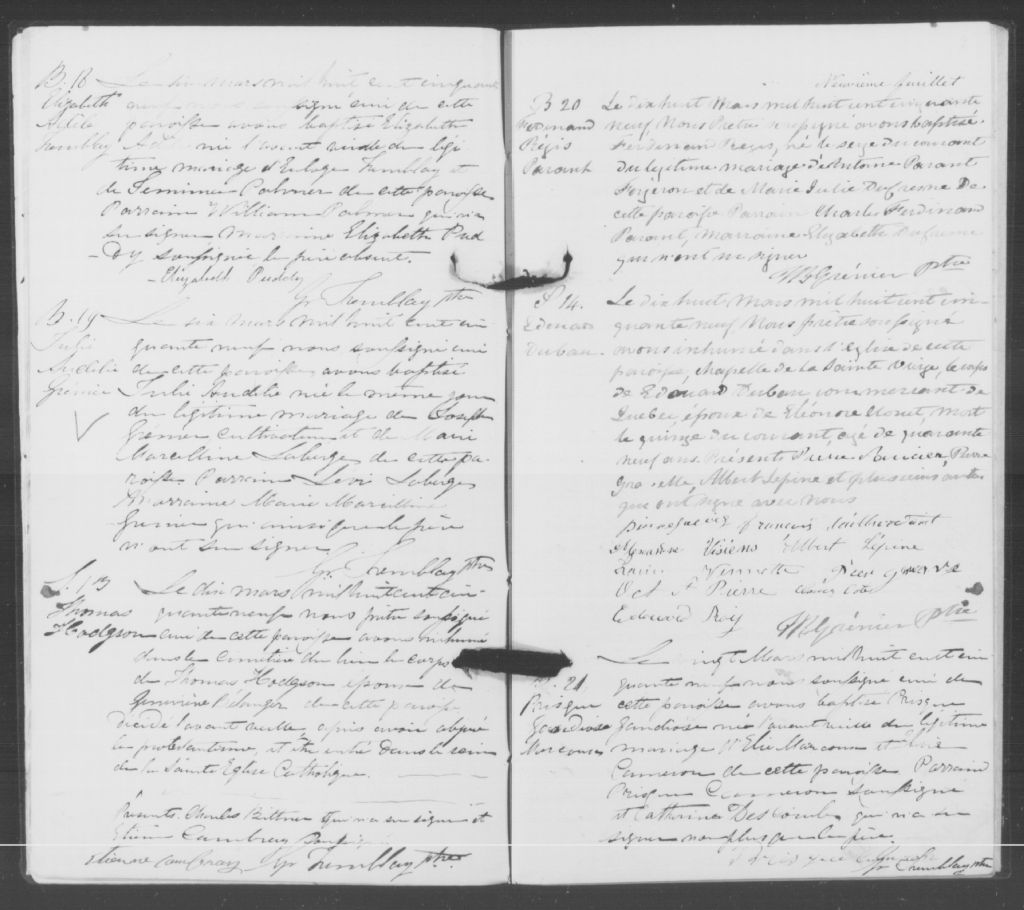 B. 18
Elizabeth
Adèle
Tremblay
Le six mars mil huit cent cinquante
neuf nous soussigné curé de cette
paroisse avons baptisé Elizabeth
Adèle née l'avant veille du légi
time mariage d'Eloge Tremblay et
de Jemima Palmer de cette paroisse
Parrain William Palmer qui n'a
su signer Marraine Elizabeth Pud
-dy soussignée le père absent.
-Elizabeth Puddy
Gr Tremblay ptre
B. 19
Julie
Audélie
Grénier
Le six mars mil huit cent cin
quante neuf nous soussigné curé
de cette paroisse avons baptisé
Julie Audélie née le même jour
du légitime mariage de Joseph
Grénier cultivateur et de Marie
Marcelline Laberge de cette pa-
roisse Parrain Lévi Laberge
Marraine Marie Marcelline
Grenier qui ainsi que le père
n'ont su signer
Gr Tremblay ptre
S. 13
Thomas
Hodgson
Le dix mars mil huit cent cin-
quante neuf nous prêtre soussigné
curé de cette paroisse avons inhumé
dans le cimetière du lieu le corps
de Thomas Hodgson époux de
Geneviève Bélanger de cette paroisse
décédé l'avant veille, après avoir abjuré
le protestantisme, et être entré dans le sein
de la Sainte Eglise Catholique.
Présents Charles Bittner qui n'a su signer et
Etienne Cambray soussigné
etienne cambray Gr Tremblay ptre
Neuvième feuillet
B 20
Ferdinand
Régis
Parant
Le dix huit Mars mil huit cent cinquante
neuf Nous Prêtre soussigné avons baptisé
Ferdinand Régis, né le seize du courant
du légitime mariage d'Antoine Parant
Forgeron et de Marie Julie Dufresne De
cette paroisse Parrain Charles Ferdinand
Parant, Marraine Elizabeth Dufresne
qui n'ont su signer
Grénier Ptre
S 14.
Edouard
Dubeau.
Le dix huit Mars mil huit cent cin-
quante neuf Nous prêtre soussigné
avons inhumé dans l'église de cette
paroisse, chapelle de la Sainte Vierge, le corps
de Edouard Dubeau commerçant de
Québec, époux de Eléonore mort
le quinze du courant, agé de quarante
neuf ans. Présents Pierre Pierre
Albert Lépine et plusieurs autres
qui ont signé avec nous
françois
Albert Lépine
Oct St Pierre
Edouard Roy Grénier Ptre
B. 21
Prisque
Marcoux
Le vingt Mars mil huit cent cin
quante neuf nous soussigné curé de
cette paroisse avons baptisé Prisque
né l'avant veille du légitime
mariage d'Elie Marcoux et
Cameron de cette paroisse Parrain
Prisque Cameron soussigné
et Catherine Descombes qui n'a su
signer non plus que le père
Gr Tremblay ptre